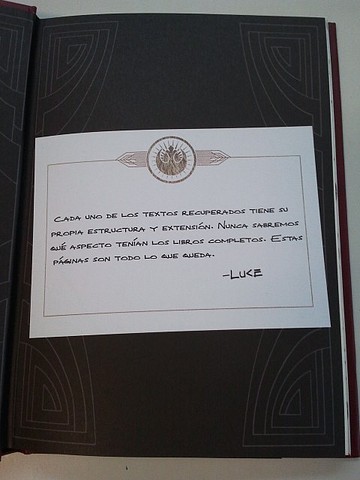 Cada uno de los textos recuperados tiene su
propia estructura y extensión. Nunca sabremos
qué aspecto tenían los libros completos. Estas
páginas son todo lo que queda.
-Luke